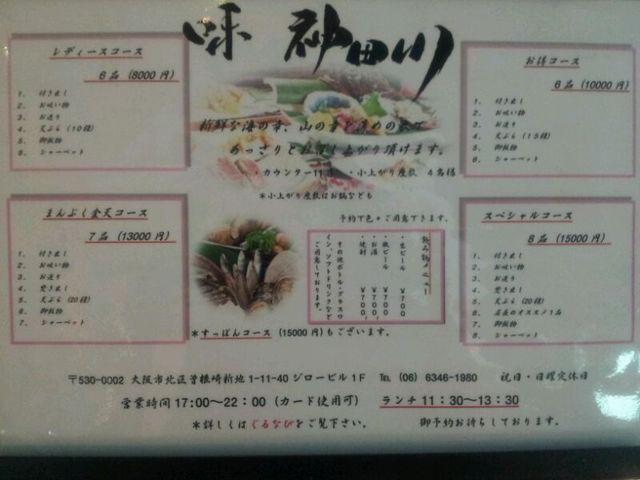 味 神田川
レディースコース
6品 (8000円)
1. 付き出し
2. お吸い物
3. お造り
4. 天ぷら (10種)
5. 御飯物
6. シャーベット
お得コース
6品 (10000円)
1. 付き出し
2. お吸い物
3. お造り
4. 天ぷら (15種)
5. 御飯物
6. シャーベット
新鮮な海の幸、山の幸を
あっさりとお召し上がり頂けます。
・カウンター11席 ・小上がり座敷 4名様
*小上がり座敷はお鍋なども
予約で色々ご用意できます。
まんぷく金天コース
7品 (13000円)
1. 付き出し
2. お吸い物
3. お造り
4. 焚き出し
5. 天ぷら (20種)
6. 御飯物
7. シャーベット
飲み物メニュー
・生ビール ¥700
・瓶ビール ¥700
・お酒 ¥700、
・焼酎 ¥700、
その他ボトル・グラスワ
イン、ソフトドリンクなど
ご用意しております。
スペシャルコース
8品 (15000円)
1. 付き出し
2. お吸い物
3. お造り
4. 焚き出し
5. 天ぷら (20種)
6. 店長のオススメ1品
7. 御飯物
8. シャーベット
*すっぽんコース (15000円)もございます。
〒530-0002 大阪市北区曽根崎新地1-11-40 ジロービル1F TEL (06) 6346-1980 祝日・日曜定休日
営業時間 17:00~22:00 (カード使用可) ランチ 11:30~13:30
*詳しくはぐるなびをご覧下さい。 御予約お待ちしております。